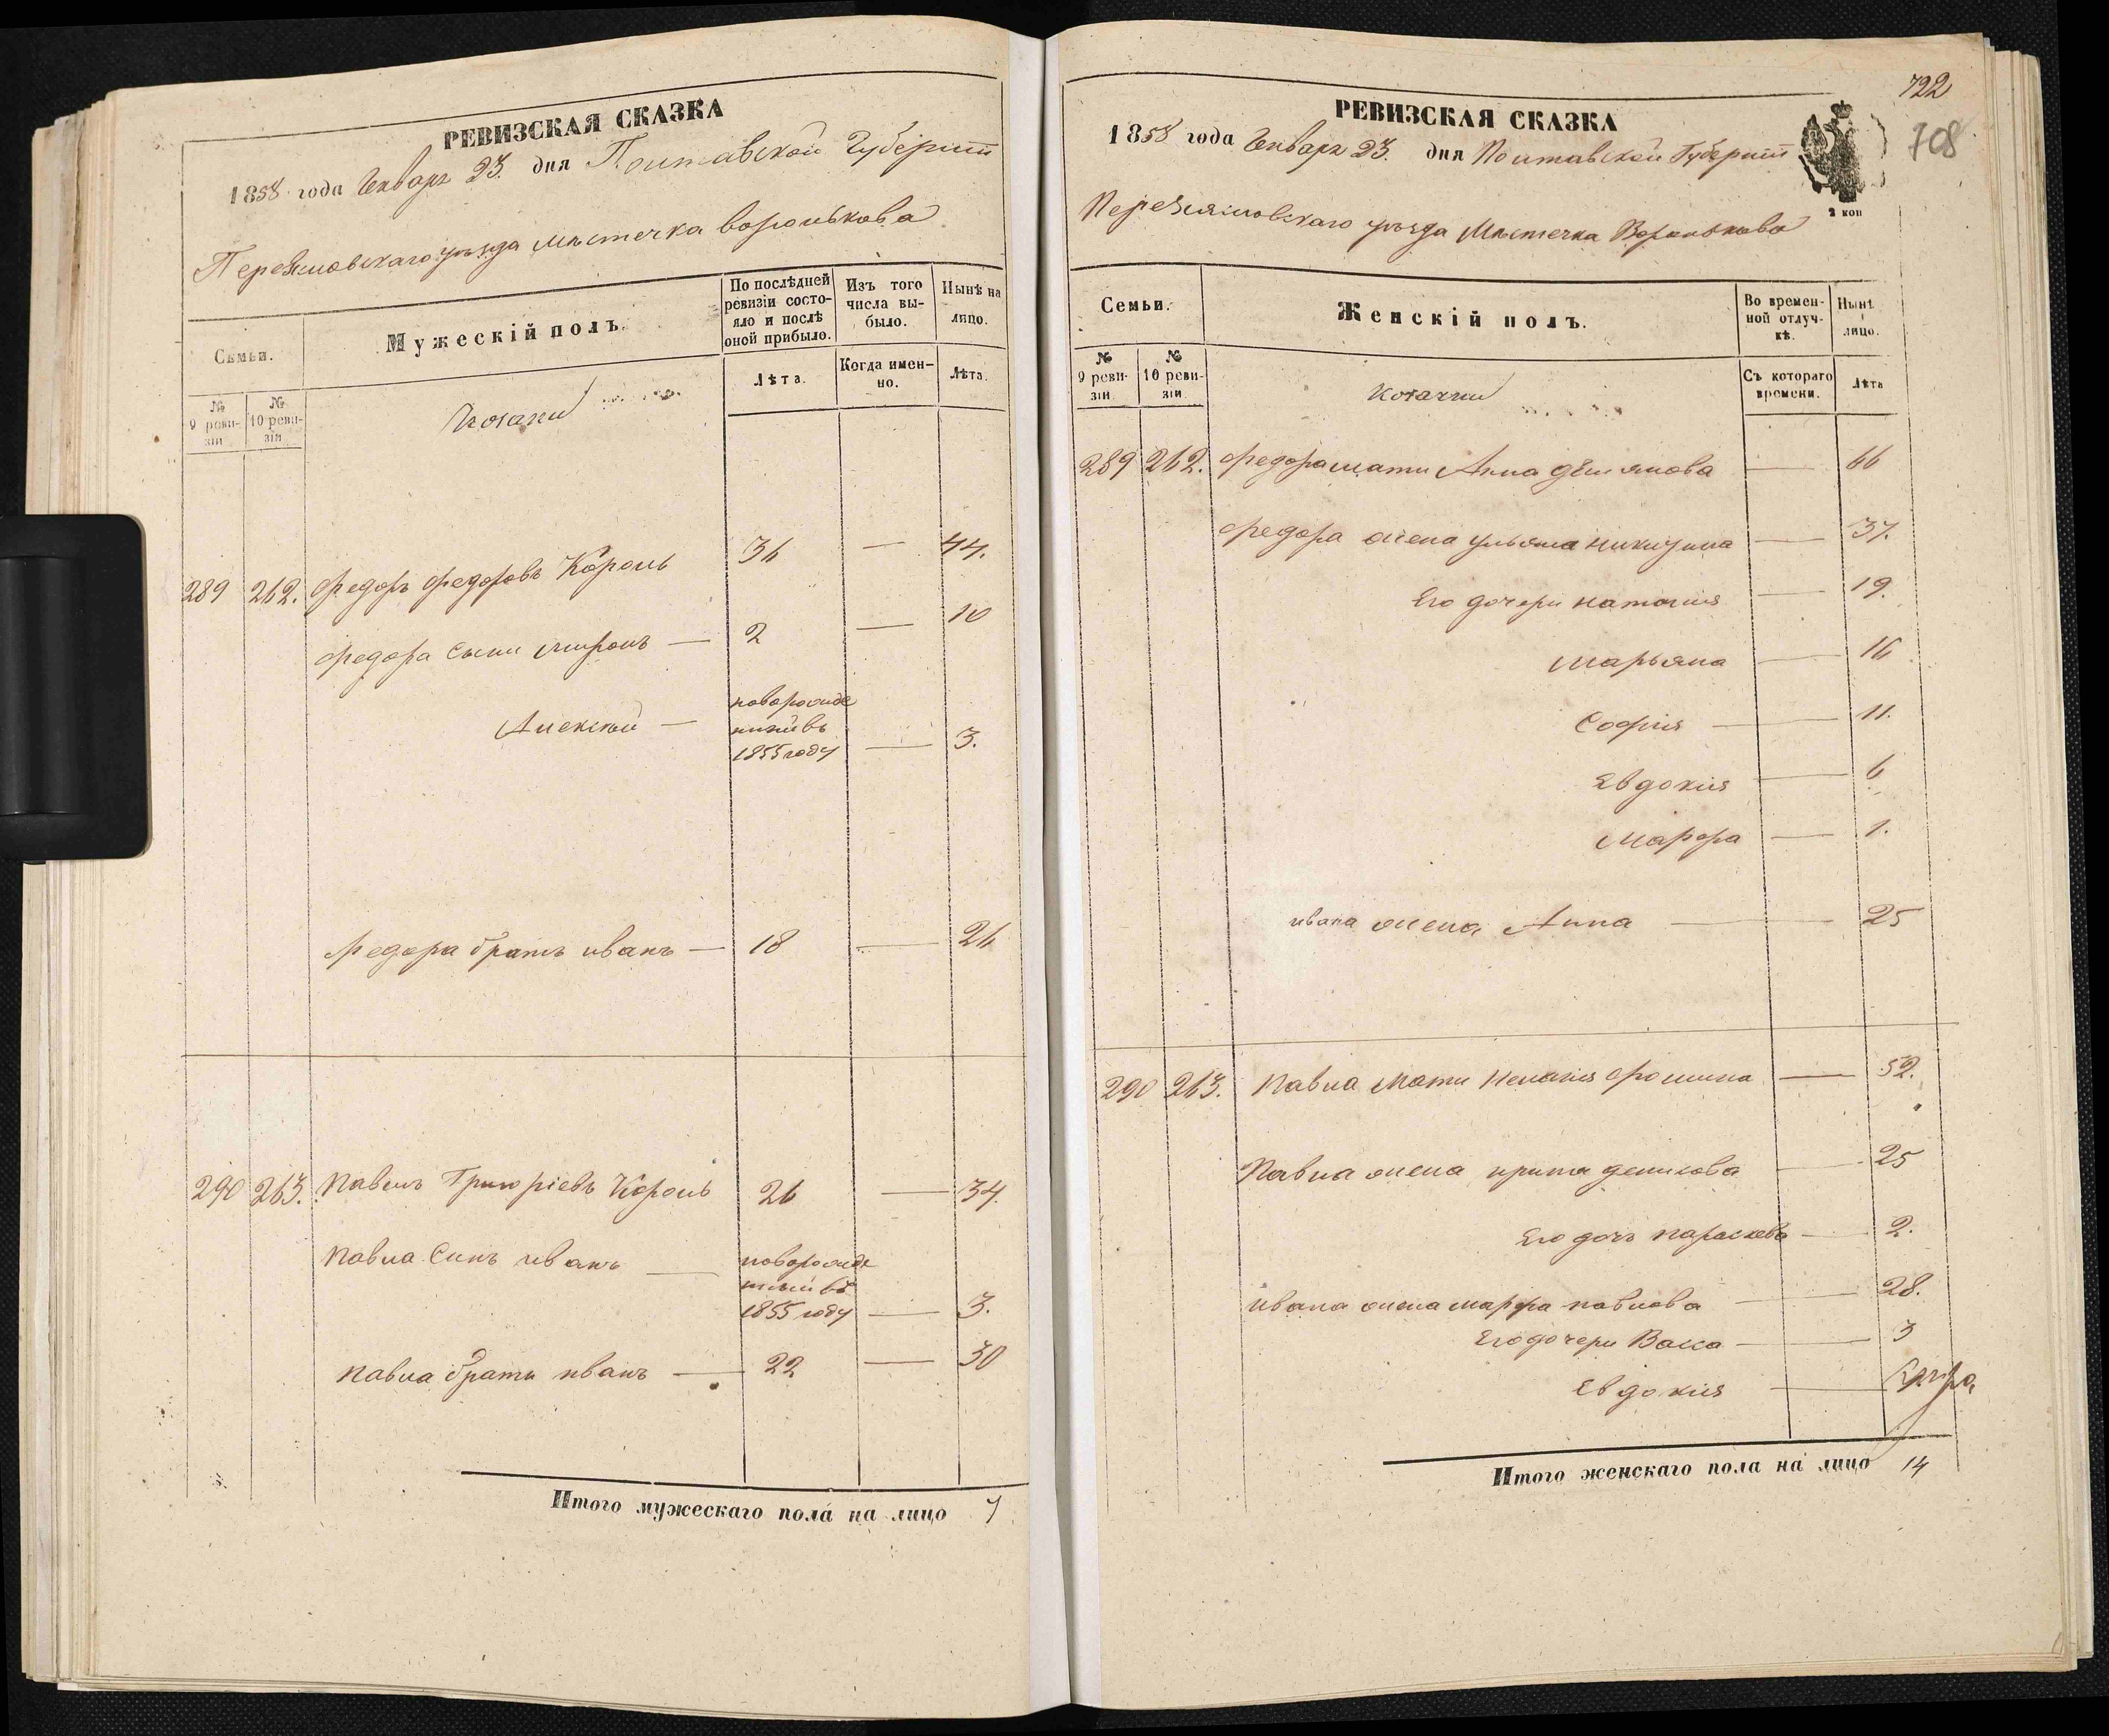 РЕВИЗСКАЯ СКАЗКА
1858 года Генваря 23. дня Полтавской Губерніи
Переяславскаго уѣзда мѣстечка воронькова
Семьи.
Мужескій полъ.
По послѣдней ревизіи состояло и послѣ оной прибыло.
Изъ того числа выбыло.
Нынѣ на лицо.
№ 9 ревизіи
№ 10 ревизіи
козаки
Лѣта.
Когда именно.
Лѣта.
289 262. Федоръ Федоровъ Король 36 — 44.
Федора сыни Миронъ — 2 — 10
Алексѣй — новорожде
нный въ
1855 году — 3.
Федора братъ иванъ — 18 — 26
290 263. Павелъ Григоріевъ Король 26 — 34.
Павла Синъ иванъ — новорожде
нный въ
1855 году — 3.
Павла братъ иванъ — 22 — 30
Итого мужескаго пола на лицо 7
722
708
РЕВИЗСКАЯ СКАЗКА
1858 года Генваря 23. дня Полтавской Губерніи
2 коп
Переяславскаго уѣзда Мѣстечка Воронькова
Семьи.
Женскій полъ.
Во временной отлучкѣ.
Нынѣ лицо.
№ 9 ревизіи
№ 10 ревизіи
козачки
Съ котораго времени.
Лѣта
289 262. Федора мати Анна демянова — 66
Федора жена ульяна никитина — 37.
Его дочери наталія — 19.
марьяна — 16
Софія — 11.
Евдокія — 6
Марфа — 1.
ивана жена Анна — 25
290 263. Павла Мати Пелагія — 52.
Павла жена ирина денисова — 25
Его дочь параскева — 2.
ивана жена марфа павлова — 28.
Его дочери Васса — 3
Евдокія —
Итого женскаго пола на лицо 14